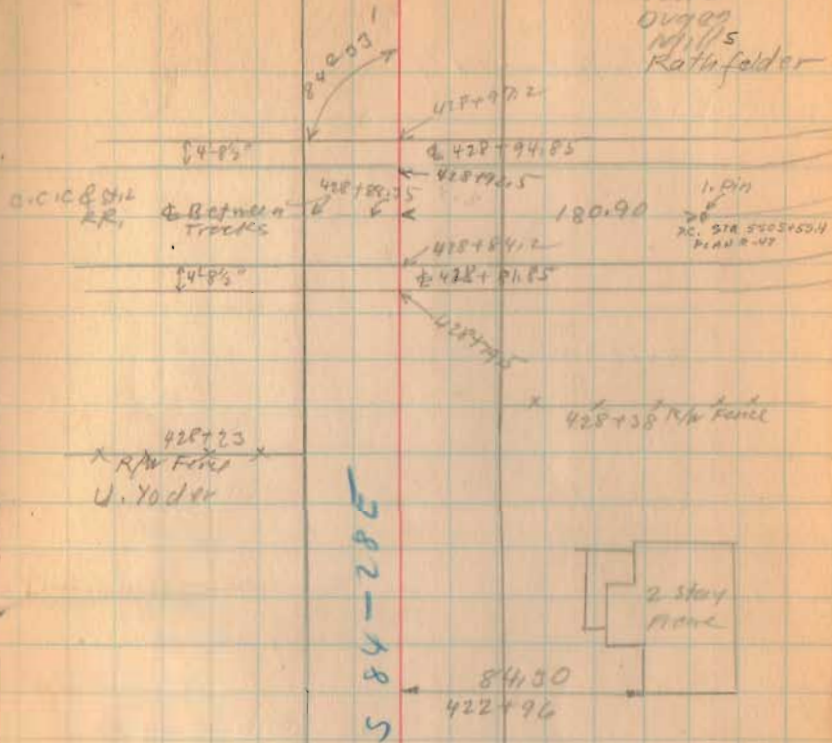 Dugan
Mills
Rathfelder
84°33'
428+97.2
4'-8½"
℄ 428+94.85
428+92.5
C.C.C & St.L
RR.
℄ Between
Tracks
428+88.35
180.90
I. Pin
P.C. STA 5505+59.4
PLAN R-47
428+84.2
4'-8½"
℄ 428+81.85
428+79.5
428+38 R/W Fence
428+23
R/W Fence
U. Yoder
S 84-28E
2 Story
Frame
84.30
422+96